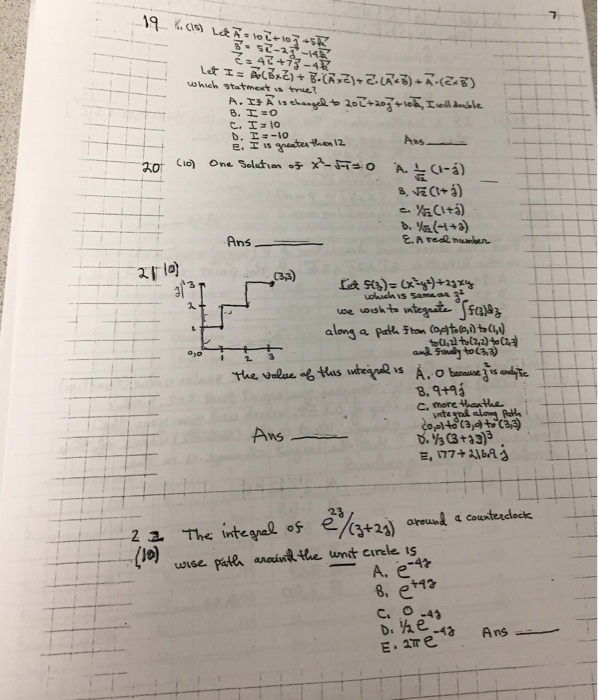 7
19 (15) Let A = 10i + 10j + 5k
B = 5i - 2j - 14k
C = 4i + 7j - 4k
Let I = A·(B×C) + B·(A×C) + C·(A×B) + A·(C×B)
which statment is true?
A. If A is changed to 20i + 20j + 10k, I will double
B. I = 0
C. I = 10
D. I = -10
E. I is greater than 12
Ans
20 (10) One Solution of x² - √-1 = 0
A. 1/√2 (1-j)
B. √2 (1+j)
C. 1/√2 (1+j)
D. 1/√2 (-1+j)
E. A real number
Ans
21 (10)
(3,3)
y
3
2
1
0,0 1 2 3
Let f(z) = (x²-y²) + 2jxy
which is same as z²
we wish to integrate ∫f(z)dz
along a path from (0,0) to (0,1) to (1,1)
to (1,2) to (2,2) to (2,3)
and finally to (3,3)
The value of this integral is
A. 0 because z² is analytic
B. 9+9j
C. more than the
integral along path
(0,0) to (3,0) to (3,3)
D. 1/3 (3+j3)³
E. 177 +
Ans
22 The integral of e^2z/(z+2j) around a counterclock
(10) wise path around the unit circle is
A. e^-4j
B. e^+4j
C. 0
D. 1/2 e^-4j
E. 2π e^-4j
Ans